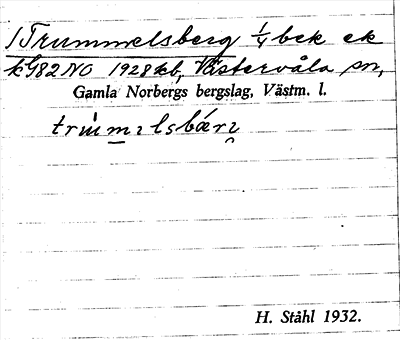 1 Trummelsberg 1/4 bek ek
k G82NO 1928 kb, Västervåla sn,
Gamla Norbergs bergslag, Västm. l.
H. Ståhl 1932.